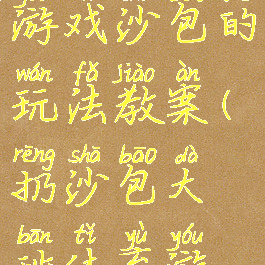 游戏沙包的
wán fǎ jiào àn
玩法教案(
rēng shā bāo dà
扔沙包大
bān tǐ yù yóu